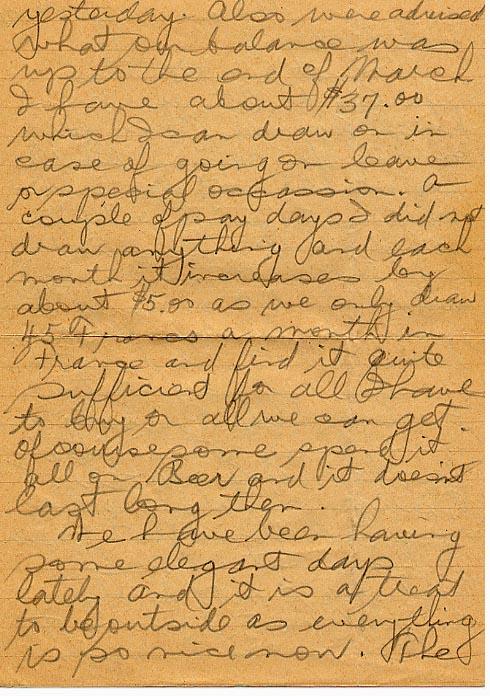 yesterday. Also were advised
what our balance was
up to the end of March
I have about $37.00
which I can draw on in
case of going on leave
or special occassion. A
couple of pay days I did not
draw anything and each
month it increases by
about $5.00 as we only draw
45 Francs a month in
France and find it quite
sufficient for all I have
to buy or all we can get.
Of course some spend it
all on Beer and it doesnt
last long then.
We have been having
some elegant days
lately and it is a treat
to be outside as everything
is so nice now. The